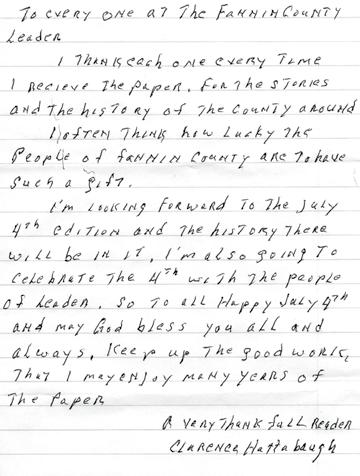 To every one at The Fannin County
Leader
I Thank each one every Time
I recieve The paper. For the stories
and The history of The County around
I often Think how Lucky The
People of Fannin County are To have
such a gift.
I'm looking forward To The July
4th edition and The history There
will be in it, I'm also going To
celebrate The 4th with The people
of Leader. So To all Happy July 4th
and may God bless you all and
always. Keep up The good work,
That I may enjoy many years of
The Paper
A very Thank full Reader
Clarence Hattabaugh